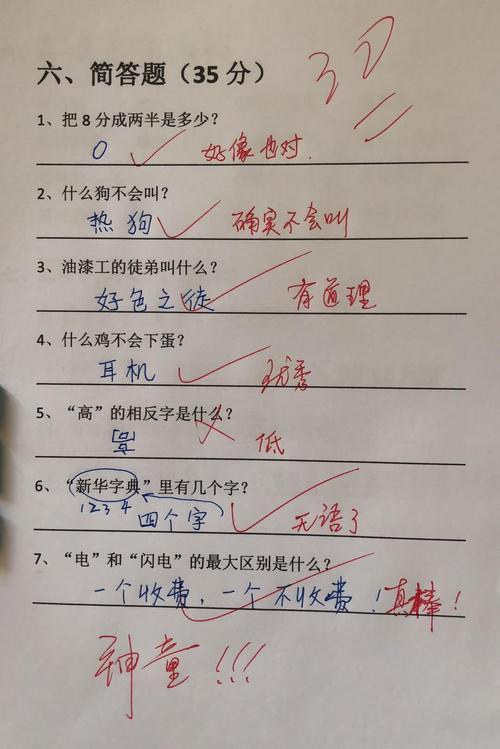 30
六、简答题（35 分）
1、把 8 分成两半是多少？
0 好像也对.
2、什么狗不会叫？
热狗 确实不会叫
3、油漆工的徒弟叫什么？
好色之徒 有道理
4、什么鸡不会下蛋？
耳机 优秀
5、“高”的相反字是什么？
低
6、“新华字典”里有几个字？
1 2 3 4 四个字 无语了
7、“电”和“闪电”的最大区别是什么？
一个收费，一个不收费！真棒！
神童!!!